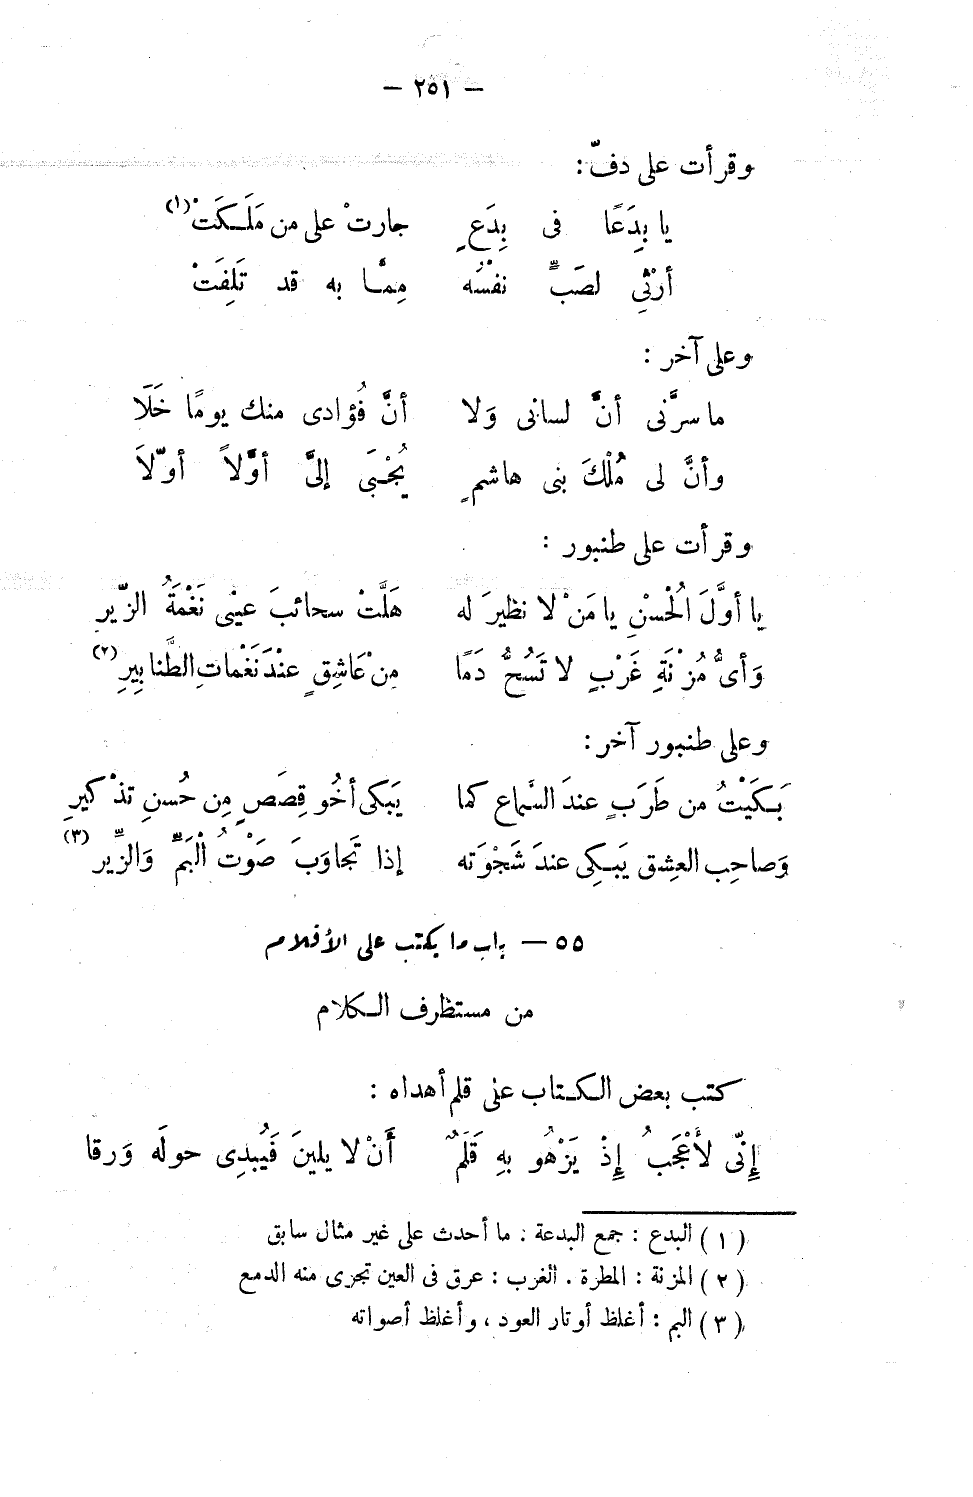 — ٢٥١ —
وقرأت على دفّ :
يا بِدَعًا فى بِدَعٍ جارتْ على من مَلَـكَتْ (١)
أرْثِى لصَبٍّ نفْسُه مِمَّـا به قد تَلِفَتْ
وعلى آخر :
ما سرَّنى أنَّ لسانى وَلا أنَّ فُؤادى منك يومًا خَلَا
وأنَّ لى مُلْكَ بنى هاشمٍ يُجْـبَى إلىَّ أوَّلاً أوّلاَ
وقرأت على طنبور :
يا أوَّلَ الْحُسْنِ يا مَنْ لا نظيرَ له هَلَّتْ سحائبَ عينْى نَغْمَةُ الزّيرِ
وَأىُّ مُزْنَةِ غَرْبٍ لا تَسُحُّ دَمًا مِنْ عَاشِقٍ عنْدَ نَغْمَاتِ الطَّنابِيرِ (٢)
وعلى طنبور آخر :
بَـكَيْتُ من طَرَبٍ عندَ السَّماع كما يَبكى أخُو قِصَصٍ مِن حُسنِ تذْكيرِ
وَصاحِب العِشق يَبـكِى عندَ شَجْوَته إذا تَجاوَبَ صَوْتُ الْبَمِّ وَالزِّير (٣)
٥٥ — باب ما يكتب على الأقلام
من مستظرف الـكلام
كتب بعض الـكـتاب على قلم أهداه :
إنِّى لأَعْجَبُ إِذْ يَزْهُو بِهِ قَلَمٌ أَنْ لا يلينَ فَيُبدِى حولَه وَرقا
( ١ ) البدع : جمع البدعة : ما أحدث على غير مثال سابق
( ٢ ) المزنة : المطرة . الغرب : عرق فى العين تجرى منه الدمع
( ٣ ) البم : أغلظ أوتار العود ، وأغلظ أصواته